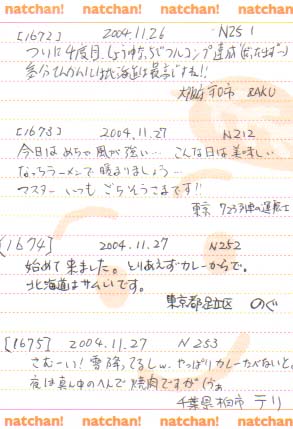 natchan! natchan! natchan! natchan!
[1672] 2004.11.26 N251
ついに4度目、しょうゆなっぴフルコンプ達成(だったはず…)
北海道は最高ですね!!
RAKU
[1673] 2004.11.27 N212
今日はめちゃ風が強い… こんな日は美味しい
なっちラーメンで暖まりましょう…
マスター いつも ごちそうさまです!!
東京 の運転士
[1674] 2004.11.27 N252
始めて来ました。とりあえずカレーからで。
北海道はサムいです。
東京都足立区 のぐ
[1675] 2004.11.27 N253
さむーい! 雪降ってるしw. やっぱりカレーたべないと。
夜は真ん中のへんで焼肉ですが
千葉県柏市 テリ
natchan! natchan! natchan! natchan!